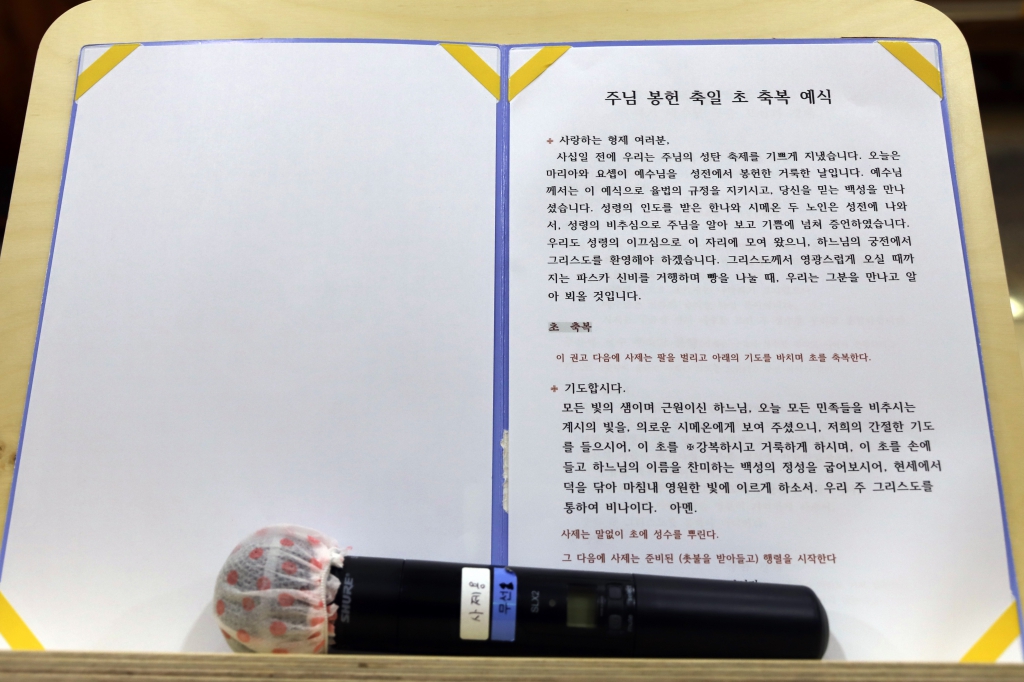 주님 봉헌 축일 초 축복 예식
✤ 사랑하는 형제 여러분,
사십일 전에 우리는 주님의 성탄 축제를 기쁘게 지냈습니다. 오늘은
마리아와 요셉이 예수님을 성전에서 봉헌한 거룩한 날입니다. 예수님
께서는 이 예식으로 율법의 규정을 지키시고, 당신을 믿는 백성을 만나
셨습니다. 성령의 인도를 받은 한나와 시메온 두 노인은 성전에 나와
서, 성령의 비추심으로 주님을 알아 보고 기쁨에 넘쳐 증언하였습니다.
우리도 성령의 이끄심으로 이 자리에 모여 왔으니, 하느님의 궁전에서
그리스도를 환영해야 하겠습니다. 그리스도께서 영광스럽게 오실 때까
지는 파스카 신비를 거행하며 빵을 나눌 때, 우리는 그분을 만나고 알
아 뵈올 것입니다.
초 축복
이 권고 다음에 사제는 팔을 벌리고 아래의 기도를 바치며 초를 축복한다.
✤ 기도합시다.
모든 빛의 샘이며 근원이신 하느님, 오늘 모든 민족들을 비추시는
계시의 빛을, 의로운 시메온에게 보여 주셨으니, 저희의 간절한 기도
를 들으시어, 이 초를 ✠강복하시고 거룩하게 하시며, 이 초를 손에
들고 하느님의 이름을 찬미하는 백성의 정성을 굽어보시어, 현세에서
덕을 닦아 마침내 영원한 빛에 이르게 하소서. 우리 주 그리스도를
통하여 비나이다. 아멘.
사제는 말없이 초에 성수를 뿌린다.
그 다음에 사제는 준비된 (촛불을 받아들고) 행렬을 시작한다
SHURE
사제용
무선
SLX2